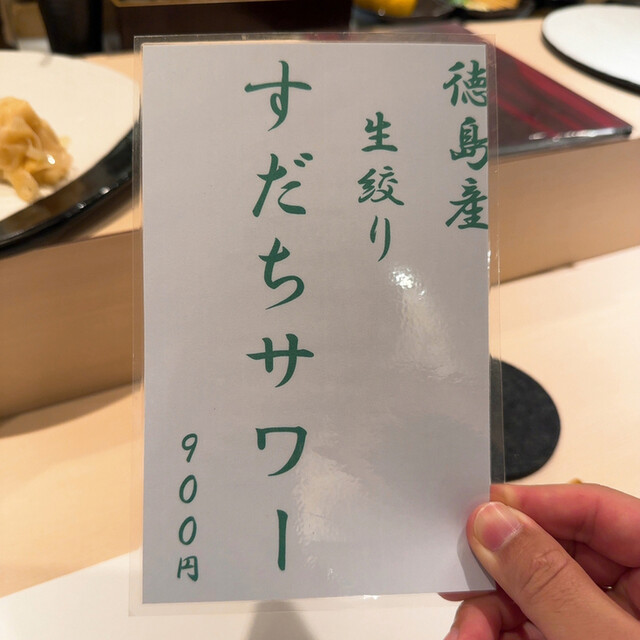 徳島産
生絞り
すだちサワー
900円